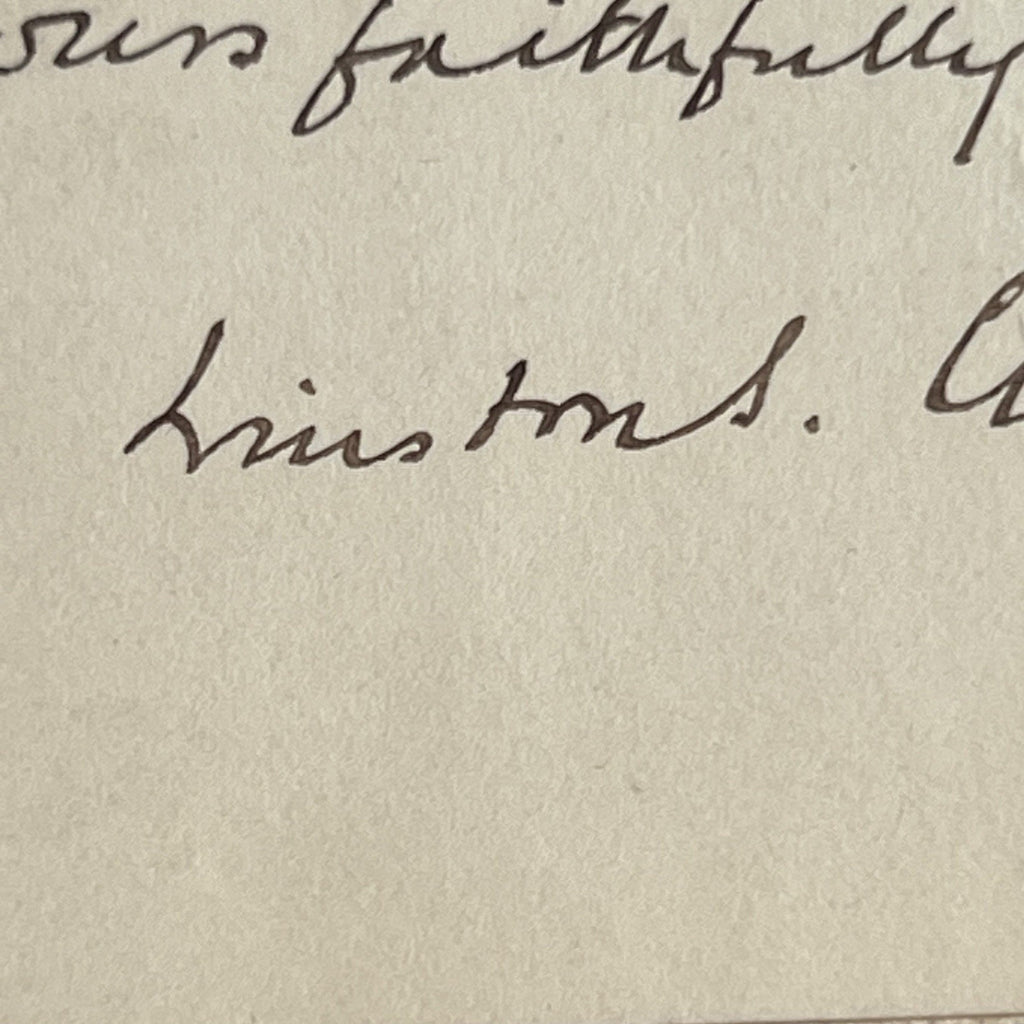 ours faithfully
Winston S. C